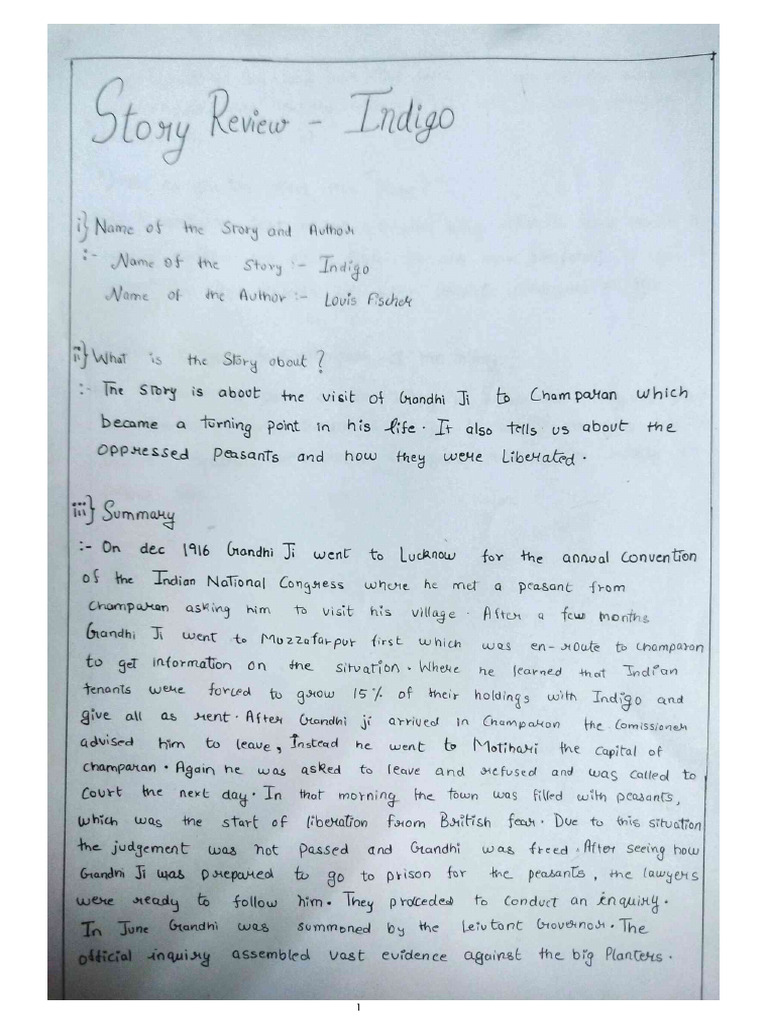 Story Review - Indigo
i} Name of the Story and Author
:- Name of the Story :- Indigo
Name of the Author :- Louis Fischer
ii} What is the Story about?
:- The Story is about the visit of Gandhi Ji to Champaran which
became a turning point in his life. It also tells us about the
oppressed Peasants and how they were Liberated.
iii} Summary
:- On dec 1916 Gandhi Ji went to Lucknow for the annual convention
of the Indian National Congress where he met a peasant from
Champaran asking him to visit his village. After a few months
Gandhi Ji went to Muzzafarpur first which was en-route to Champaran
to get information on the situation. Where he learned that Indian
tenants were forced to grow 15% of their holdings with Indigo and
give all as rent. After Gandhi ji arrived in Champaran the Comissioner
advised him to leave, Instead he went to Motihari the capital of
Champaran. Again he was asked to leave and refused and was called to
Court the next day. In that morning the town was filled with peasants,
which was the start of liberation from British fear. Due to this situation
the judgement was not passed and Gandhi was freed. After seeing how
Gandhi Ji was prepared to go to prison for the peasants, the lawyers
were ready to follow him. They proceded to conduct an inquiry.
In June Gandhi was summoned by the Leiutant Governor. The
official inquiry assembled vast evidence against the big Planters.
1